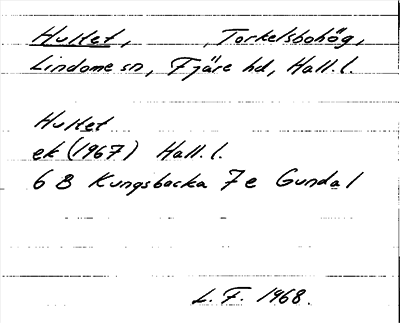 Hultet, , Torkelsbohög,
Lindome sn, Fjäre hd, Hall. l.
Hultet
ek (1967) Hall. l.
6 B Kungsbacka 7 e Gundal
L. F. 1968.